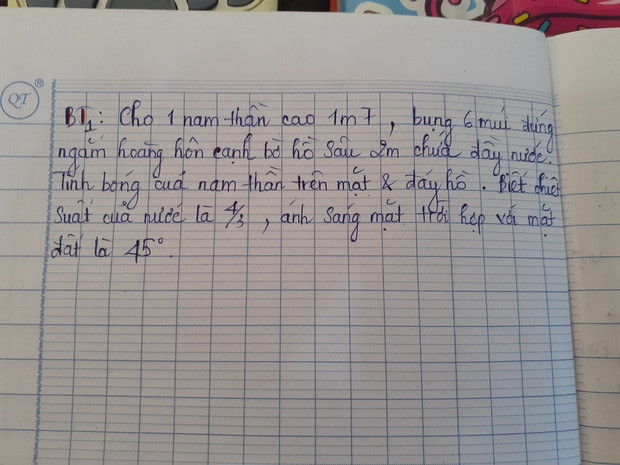 QT
BT1: Cho 1 nam thần cao 1m7, bụng 6 múi đứng
ngắm hoàng hôn cạnh bờ hồ sâu 2m chứa đầy nước.
Tính bóng của nam thần trên mặt & đáy hồ. Biết chiết
suất của nước là 4/3, ánh sáng mặt trời hợp với mặt
đất là 45°.